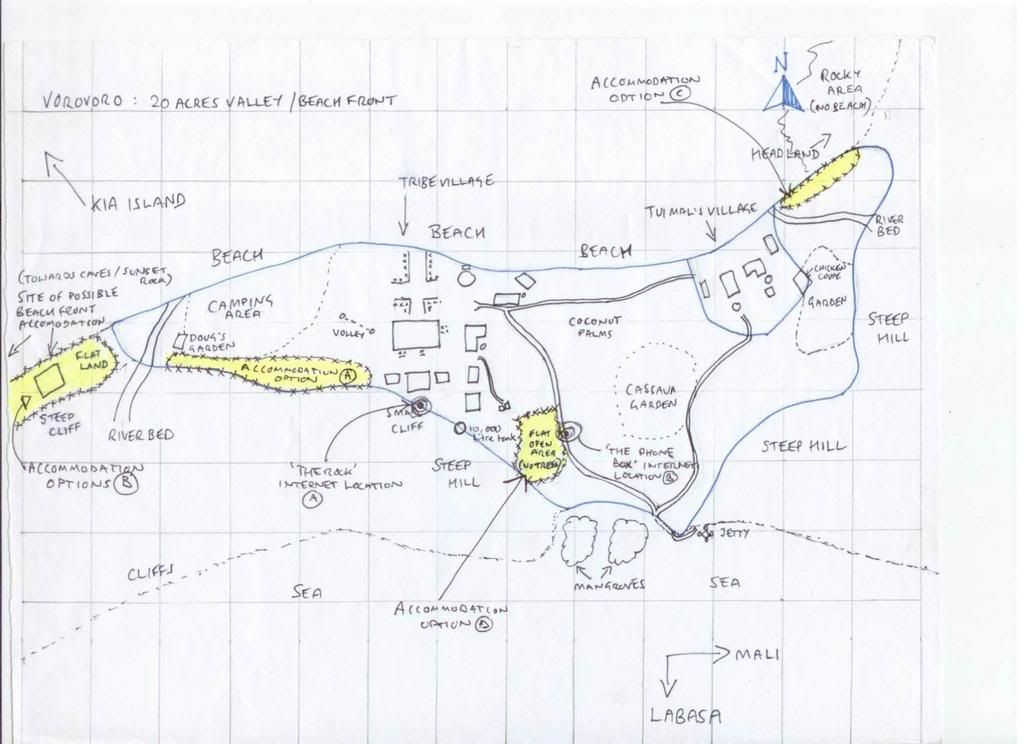 VOROVORO : 20 ACRES VALLEY / BEACH FRONT
ACCOMMODATION
OPTION C
N
ROCKY
AREA
(NO BEACH)
HEADLAND
KIA ISLAND
TRIBE VILLAGE
TUI MAL'S VILLAGE
RIVER
BED
BEACH
BEACH
BEACH
(TOWARDS CAVES / SUNSET
ROCK)
SITE OF POSSIBLE
BEACH FRONT
ACCOMODATION
CAMPING
AREA
CHICKEN
COUPE
GARDEN
VOLLEY
COCONUT
PALMS
STEEP
HILL
DOUG'S
GARDEN
FLAT
LAND
ACCOMMODATION
OPTION A
CASSAVA
GARDEN
STEEP
CLIFF
SMALL
CLIFF
RIVER BED
10,000
litre tank
FLAT
OPEN
AREA
(NO TREES)
STEEP HILL
ACCOMMODATION
OPTIONS B
'THE ROCK'
INTERNET LOCATION
A
STEEP
HILL
'THE PHONE
BOX' INTERNET
LOCATION B
JETTY
CLIFFS
SEA
MANGROVES
SEA
ACCOMMODATION
OPTION D
MALI
LABASA